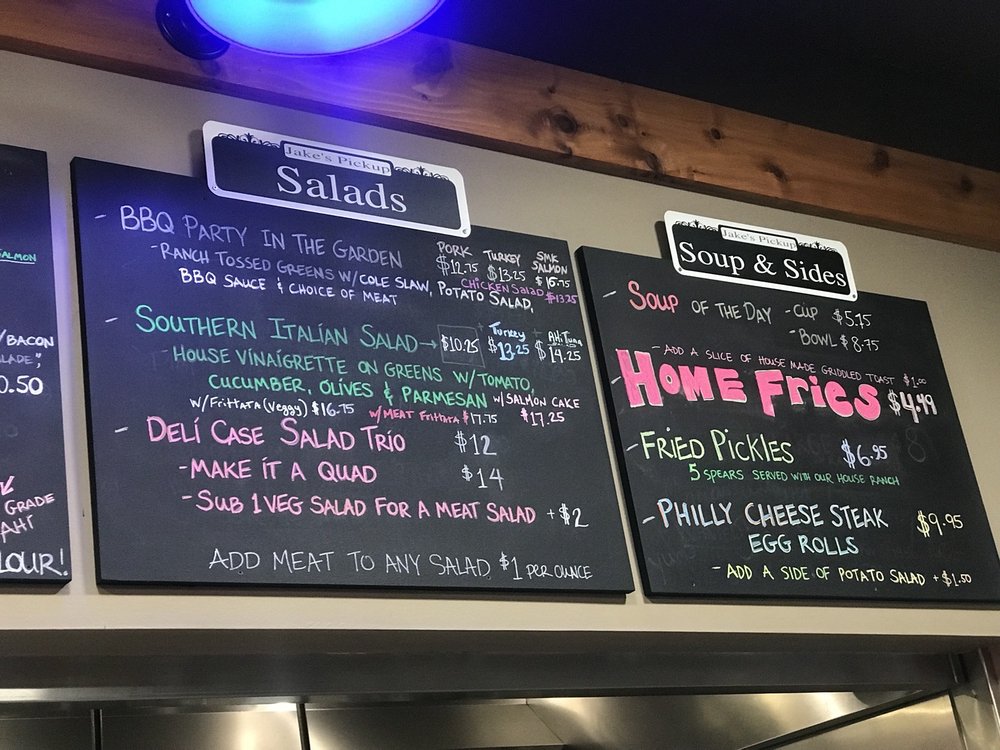 SALMON
/BACON
LADE",
0.50
GRADE
AHI
LOUR!
Jake's Pickup
Salads
- BBQ PARTY IN THE GARDEN
PORK TURKEY SMK SALMON
$12.75 $13.25 $16.75
- RANCH TOSSED GREENS W/ COLE SLAW, POTATO SALAD,
CHICKEN SALAD $13.25
BBQ SAUCE & CHOICE OF MEAT
- SOUTHERN ITALIAN SALAD → $10.25
Turkey $13.25
AHI Tuna $14.25
- HOUSE VINAIGRETTE ON GREENS W/ TOMATO,
CUCUMBER, OLIVES & PARMESAN
W/SALMON CAKE $17.25
W/FRITTATA (VEGGY) $16.75
W/MEAT FRITTATA $17.75
- DELI CASE SALAD TRIO $12
- MAKE IT A QUAD $14
- SUB 1 VEG SALAD FOR A MEAT SALAD + $2
ADD MEAT TO ANY SALAD $1 PER OUNCE
Jake's Pickup
Soup & Sides
- SOUP OF THE DAY - CUP $5.75
- BOWL $8.75
- ADD A SLICE OF HOUSE MADE GRIDDLED TOAST $1.00
- HOME FRIES $4.49
- FRIED PICKLES $6.95
5 SPEARS SERVED WITH OUR HOUSE RANCH
- PHILLY CHEESE STEAK $9.95
EGG ROLLS
- ADD A SIDE OF POTATO SALAD + $1.50